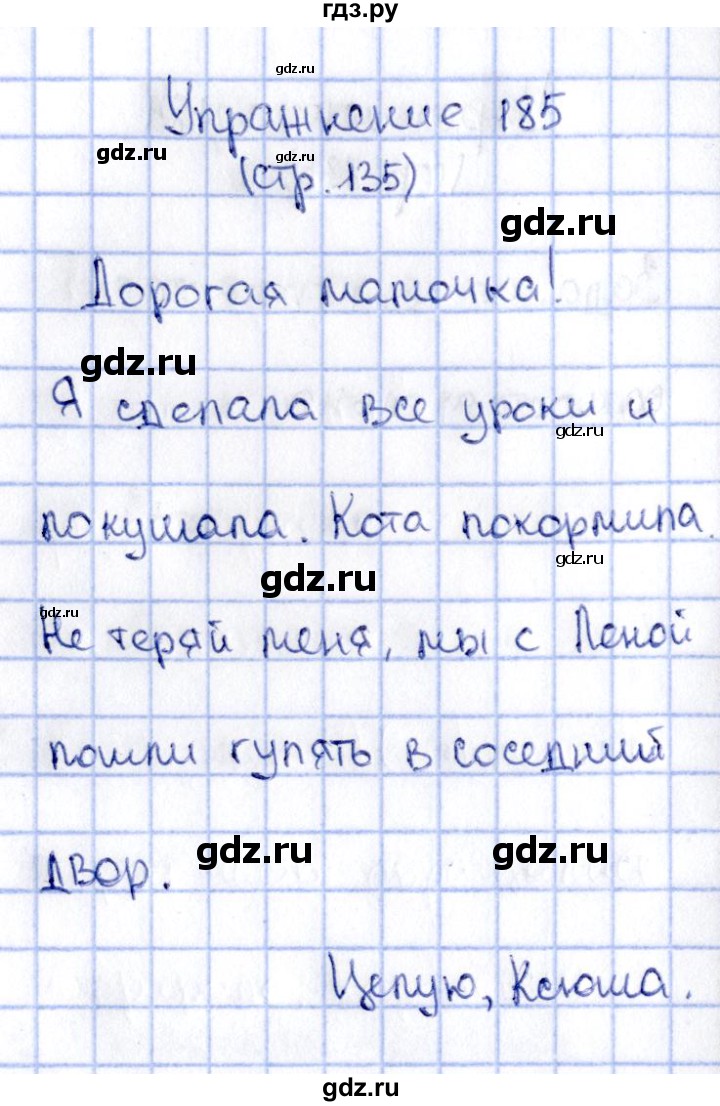 гдз.ру
gdz.ru
Упражнение 185
gdz.ru
gdz.ru
(стр. 135)
gdz.ru
Дорогая мамочка!
gdz.ru
Я сделала все уроки и
gdz.ru
покушала. Кота покормила.
gdz.ru
gdz.ru
gdz.ru
Не теряй меня, мы с Леной
пошли гулять в соседний
gdz.ru
gdz.ru
двор.
Целую, Ксюша.
gdz.ru